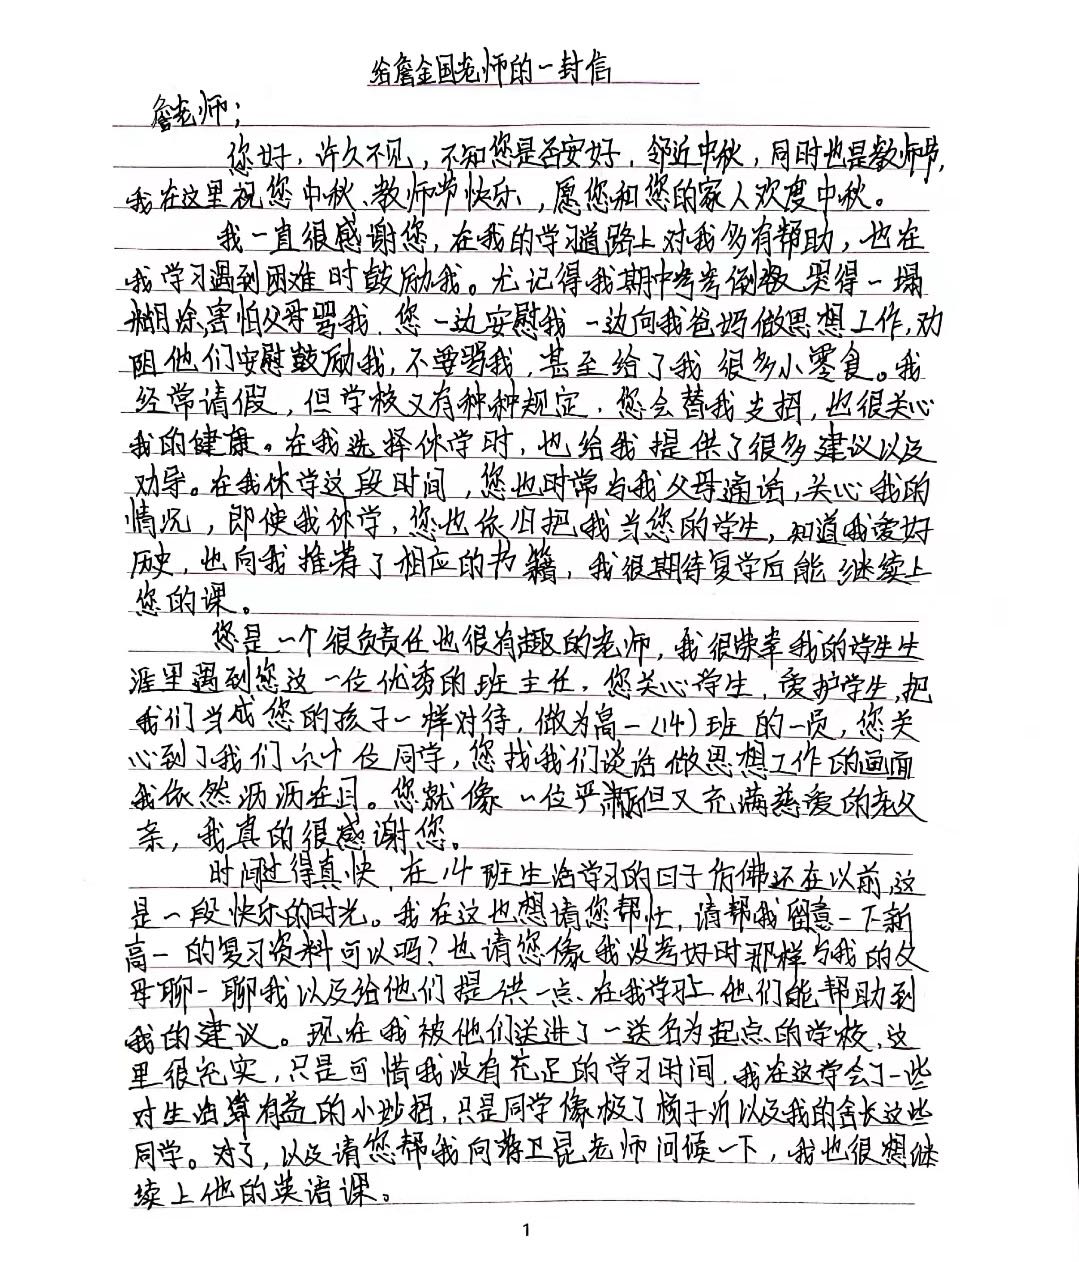 给詹金国老师的一封信
詹老师；
您好，许久不见，不知您是否安好，邻近中秋，同时也是教师节，
我在这里祝您中秋、教师节快乐，愿您和您的家人欢度中秋。
我一直很感谢您，在我的学习道路上对我多有帮助，也在
我学习遇到困难时鼓励我。尤记得我期中考考倒数哭得一塌
糊涂，害怕父母骂我，您一边安慰我一边向我爸妈做思想工作，劝
阻他们安慰鼓励我，不要骂我，甚至给了我很多小零食。我
经常请假，但学校又有种种规定，您会替我支招，也很关心
我的健康。在我选择休学时，也给我提供了很多建议以及
劝导。在我休学这段时间，您也时常与我父母通话，关心我的
情况，即使我休学，您也依旧把我当您的学生，知道我爱好
历史，也向我推荐了相应的书籍，我很期待复学后能继续上
您的课。
您是一个很负责任也很有趣的老师，我很荣幸我的学生生
涯里遇到您这一位优秀的班主任，您关心学生，爱护学生，把
我们当成您的孩子一样对待，做为高一（14）班的一员，您关
心到了我们六十位同学，您找我们谈话做思想工作的画面
我依然历历在目。您就像一位严肃但又充满慈爱的老父
亲，我真的很感谢您。
时间过得真快，在14班生活学习的日子仿佛还在以前，这
是一段快乐的时光。我在这也想请您帮忙，请帮我留意一下新
高一的复习资料可以吗？也请您像我没考好时那样与我的父
母聊一聊我以及给他们提供一点、在我学习上他们能帮助到
我的建议。现在我被他们送进了一送名为起点的学校，这
里很充实，只是可惜我没有充足的学习时间，我在这学会了一些
对生活算有益的小妙招，只是同学像极了杨子沂以及我的舍长这些
同学。对了，以及请您帮我向蒋卫昆老师问候一下，我也很想继
续上他的英语课。
1